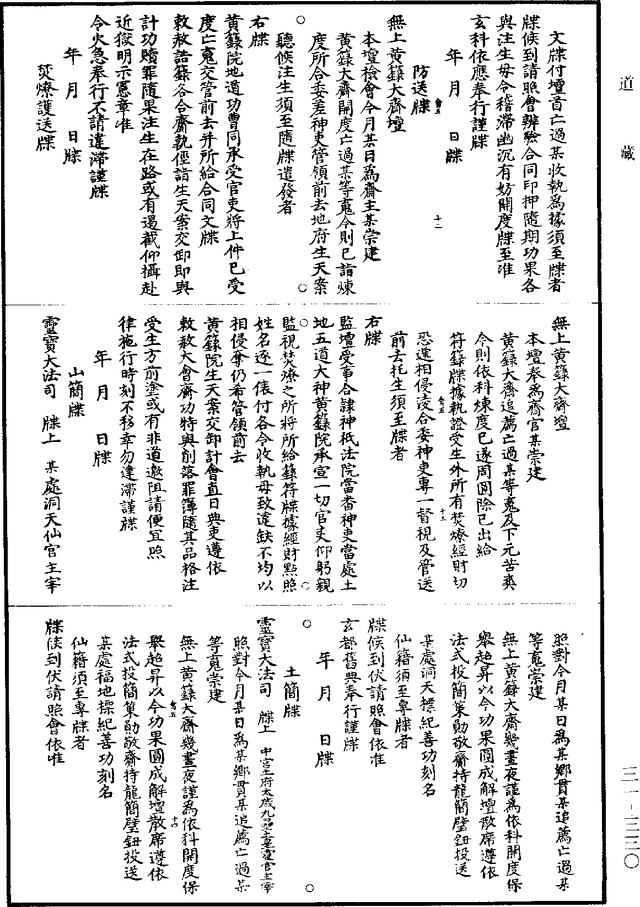 道藏
文牒付壇首亡過某收執爲據須至牒者
牒候到請照會辦驗合同印押隨期功果各
與注生毋令稽滯幽沉有妨開度牒至准
玄科依應奉行謹牒
年 月 日牒
防送牒
十二
無上黄籙大齋壇
本壇檢會今月某日爲齋主某崇建
黄籙大齋開度亡過某等䰟今則已詣煉
度所合委差神吏管領前去地府生天案
聽候注生須至隨牒遣發者
右牒
黄籙院地道功曹同承受官吏將上件已受
度亡䰟交管前去并所給合同文牒
敕赦誥籙各合齋執徑詣生天案交卸即與
計功贖罪隨果注生在路或有遏截仰攝赴
近獄明示憲章准
令火急奉行不請違滯謹牒
年 月 日牒
焚燎護送牒
無上黄籙大齋壇
本壇奉爲齋官某崇建
黄籙大齋追薦亡過某等䰟及下元苦爽
今則依科煉度已遂周圓除已出給
符籙牒據執證受生外所有焚燎經財切
十三
恐違相侵淩合委神吏專一督視及管送
前去托生須至牒者
右牒
監壇受事合隸神祇法院當番神吏當處土
地五道大神黄籙院承宣一切官吏仰躬親
監視焚燎之所將所給籙符牒據經財點照
姓名逐一俵付各令收執毋致違缺不均以
相侵奪仍希管領前去
黄籙院生天案交卸計會直日典吏遵依
敕赦大會齋功特與削落罪簿隨其品格注
受生方前塗或有非道邀阻請便宜照
律施行時刻不移幸勿違滯謹牒
年 月 日牒
山簡牒
靈寶大法司 牒上 某處洞天仙官主宰
照對今月某日爲某鄉貫某追薦亡過某
等䰟崇建
無上黄籙大齋幾晝夜謹爲依科開度保
舉超昇以今功果圓成解壇散席遵依
法式投簡策勛敬齋持龍簡璧鈕投送
某處洞天標紀善功刻名
仙籍須至專牒者
牒候到伏請照會依准
玄都舊典奉行謹牒
年 月 日牒
土簡牒
靈寶大法司 牒上 中宮土府太歲九壘土皇靈官主宰
照對今月某日爲某鄉貫某追薦亡過某
等䰟崇建
無上黄籙大齋幾晝夜謹爲依科開度保
十四
舉超昇以今功果圓成解壇散席遵依
法式投簡策勛敬齋持龍簡璧鈕投送
某處福地標紀善功刻名
仙籍須至專牒者
牒候到伏請照會依准
三一-三三〇